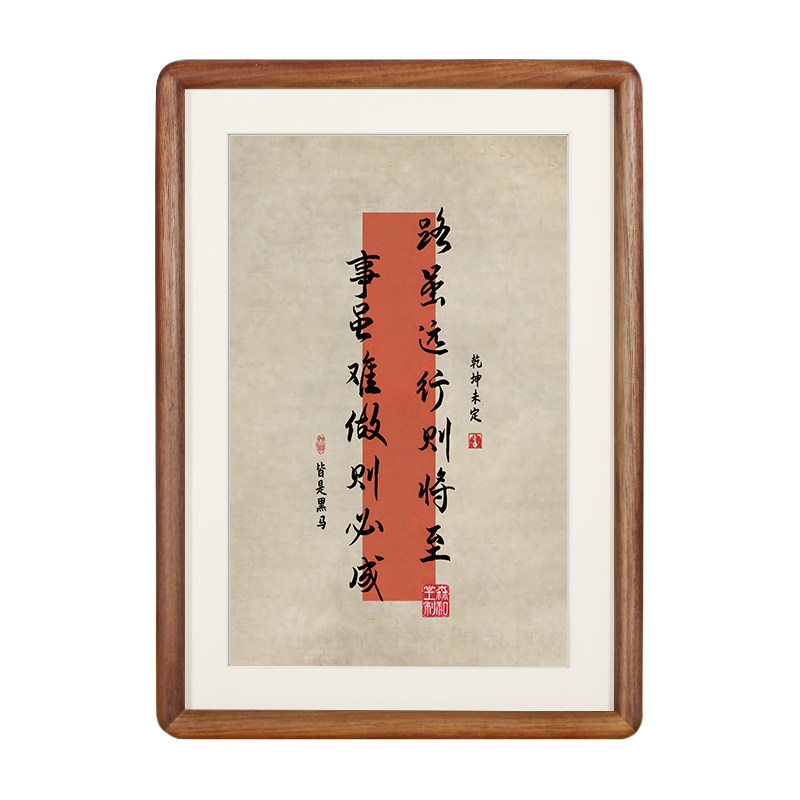 乾坤未定
路虽远行则将至
事虽难做则必成
皆是黑马